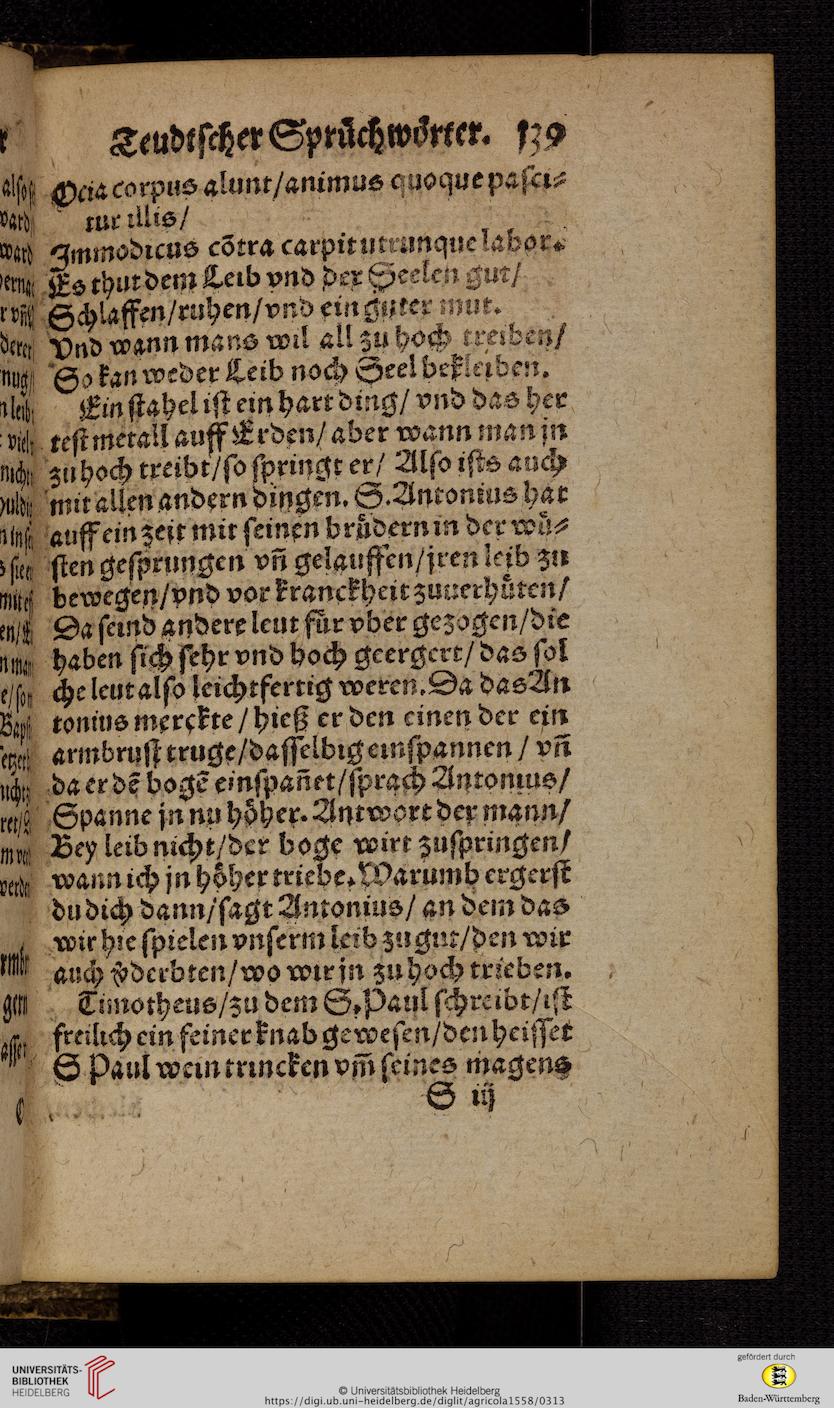 Teudtscher Sprüchwörter. 139
Ocia corpus alunt/animus quoque pasci⸗
tur illis/
Immodicus cõtra carpit utrunque labor.
Es thut dem Leib vnd der Seelen gut/
Schlaffen/ruhen/vnd ein guter mut.
Vnd wann mans wil all zu hoch treiben/
So kan weder Leib noch Seel bekleiben.
Ein stahel ist ein hart ding/ vnd das her
test metall auff Erden/ aber wann man jn
zu hoch treibt/so springt er/ Also ists auch
mit allen andern dingen. S. Antonius hat
auff ein zeit mit seinen brůdern in der wů⸗
sten gesprungen vñ gelauffen/jren leib zu
bewegen/vnd vor kranckheit zuuerhůten/
Da seind andere leut für vber gezogen/die
haben sich sehr vnd hoch geergert/das sol
che leut also leichtfertig weren. Da das An
tonius merckte / hieß er den einen der ein
armbrust truge/dasselbig einspannen / vñ
da er dẽ bogẽ einspañet/sprach Antonius/
Spanne jn nu höher. Antwort der mann/
Bey leib nicht/der boge wirt zuspringen/
wann ich jn höher triebe. Warumb ergerst
du dich dann/sagt Antonius/ an dem das
wir hie spielen vnserm leib zu gut/den wir
auch v̊derbten/wo wir jn zu hoch trieben.
Timotheus/zu dem S. Paul schreibt/ist
freilich ein feiner knab gewesen/den heisset
S Paul wein trincken vm̃ seines magens
S iij
UNIVERSITÄTS-
BIBLIOTHEK
HEIDELBERG
© Universitätsbibliothek Heidelberg
https://digi.ub.uni-heidelberg.de/diglit/agricola1558/0313
gefördert durch
Baden-Württemberg